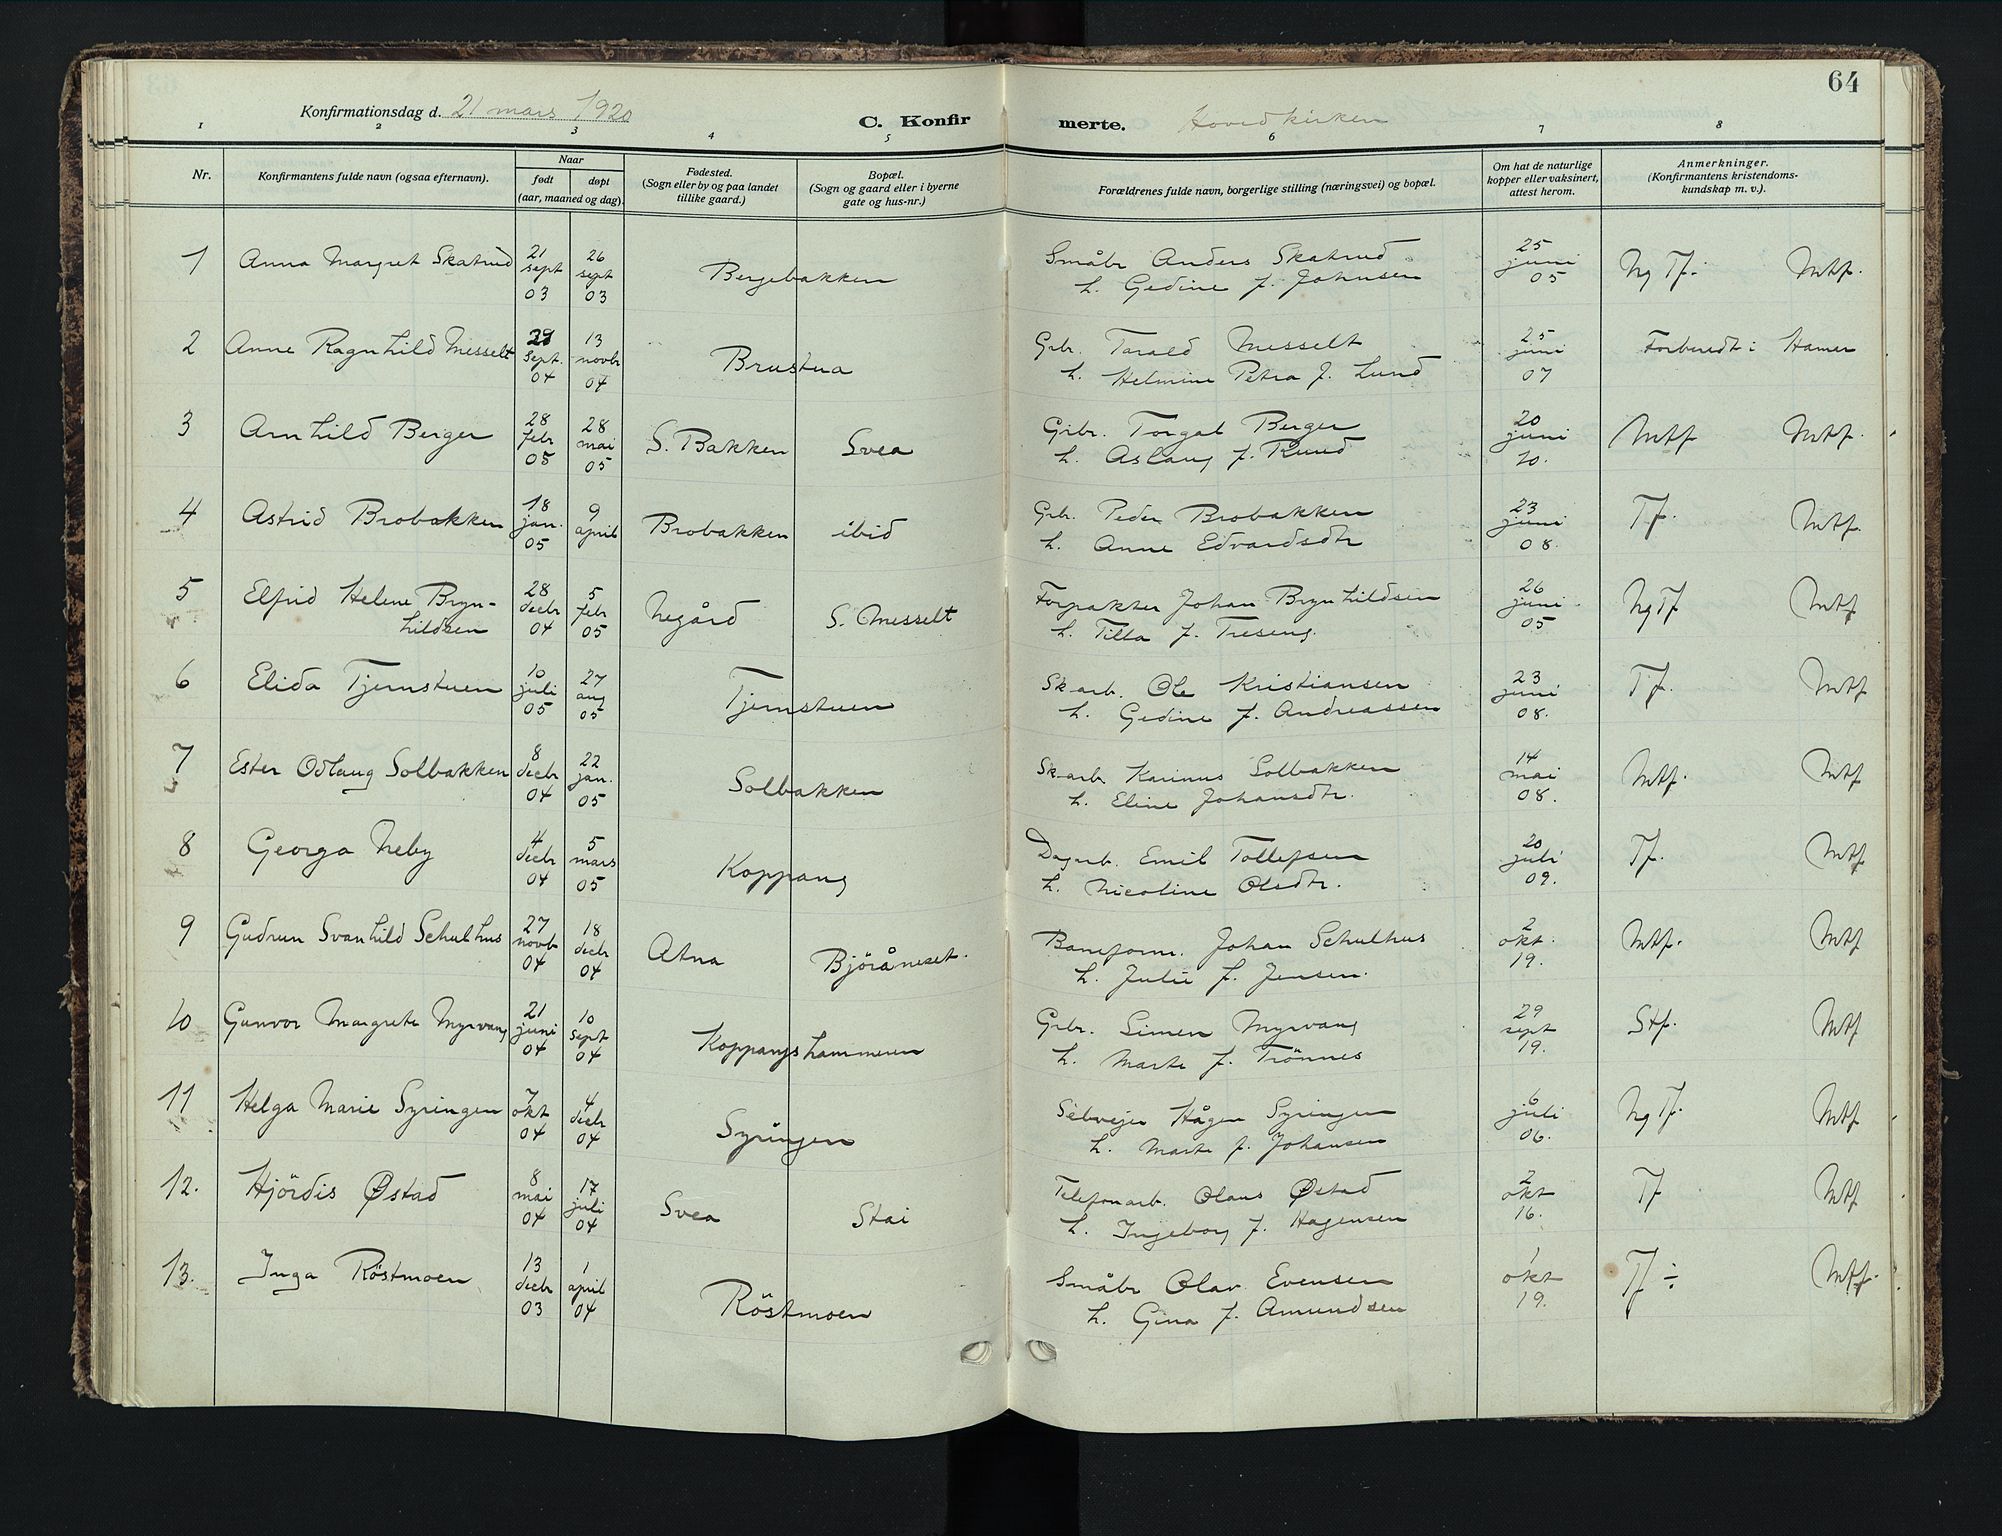 64
Konfirmationsdag d. 21 mars 1920 C. Konfirmerte. Hovedkirken
1 2 3 4 5 6 7 8
Nr. Konfirmantens fulde navn (ogsaa efternavn). Naar født døpt (aar, maaned og dag). Fødested. (Sogn eller by og paa landet tillike gaard.) Bopæl. (Sogn og gaard eller i byerne gate og hus-nr.) Forældrenes fulde navn, borgerlige stilling (næringsvei) og bopæl. Om hat de naturlige kopper eller vaksinert, attest herom. Anmerkninger. (Konfirmantens kristendomskundskap m. v.).
1 Anna Margret Skatrud 21 sept 03 26 sept 03 Bergebakken Småbr Anders Skatrud 25 juni 05 Ng Tf. Mtf.
h. Gedine f. Johnsen
2 Anne Ragnhild Messelt sept. 04 13 novbr 04 Brustua Grbr. Tarald Messelt 25 juni 07 Forberedt i Hamar
h. Helmine Petra f. Lund
3 Arnhild Berger 28 febr 05 28 mai 05 S. Bakken Svea Grbr. Torgal Berger 20 juni 10. Mtf Mtf.
h. Aslaug f. Rund
4 Astrid Brobakken 18 jan. 05 9 april Brobakken ibid Grbr. Peder Brobakken 23 juni 08. Tf. Mtf.
h. Anne Edvardsdtr
5 Elfrid Helene Bryn- 28 decbr 04 5 febr 05 Negård S. Messelt Forpakter Johan Brynhildsen 26 juni 05 Ng Tf Mtf
hildsen h. Tilla f. Treseng.
6 Elida Tjernstuen 10 juli 05 27 aug 05 Tjernstuen Sk-arb. Ole Kristiansen 23 juni 08. Tf. Mtf
h. Gedine f. Andreassen
7 Ester Odlaug Solbakken 8 decbr 04 22 jan. 05 Solbakken Sk-arb. Karinus Solbakken 14 mai 08. Mtf. Mtf
h. Eline Johansdtr.
8 Georga Neby 4 decbr 04 5 mars 05 Koppang Dagarb. Emil Tollefsen 20 juli 09. Tf. Mtf
h. Nicoline Olsdtr.
9 Gudrun Svanhild Schulhus 27 novb 04 18 decbr 04 Atna Björåneset. Baneform. Johan Schulhus 2 okt. 19. Mtf. Mtf
h. Julie f. Jensen.
10 Gunvor Margrete Myrvang 21 juni 04 10 sept 04 Koppangshammeren Grbr. Simen Myrvang 29 sept 19. Stf. Mtf
h. Marte f. Trönnes
11 Helga Marie Syringen 7 okt 04 4 decbr 04 Syringen Selvejer Hågen Syringen 6 juli 06. Ng Tf. Mtf
h. Marte f. Johansen
12. Hjördis Østad 8 mai 04 17 juli 04 Svea Stai Telefonarb. Olaus Østad 2 okt 16. Tf Mtf
h. Ingeborg f. Hagensen
13. Inga Röstmoen 13 decbr 03 1 april 04 Röstmoen Småbr Olav Evensen 1 okt 19. Tf ÷ Mtf.
h. Gina f. Amundsen